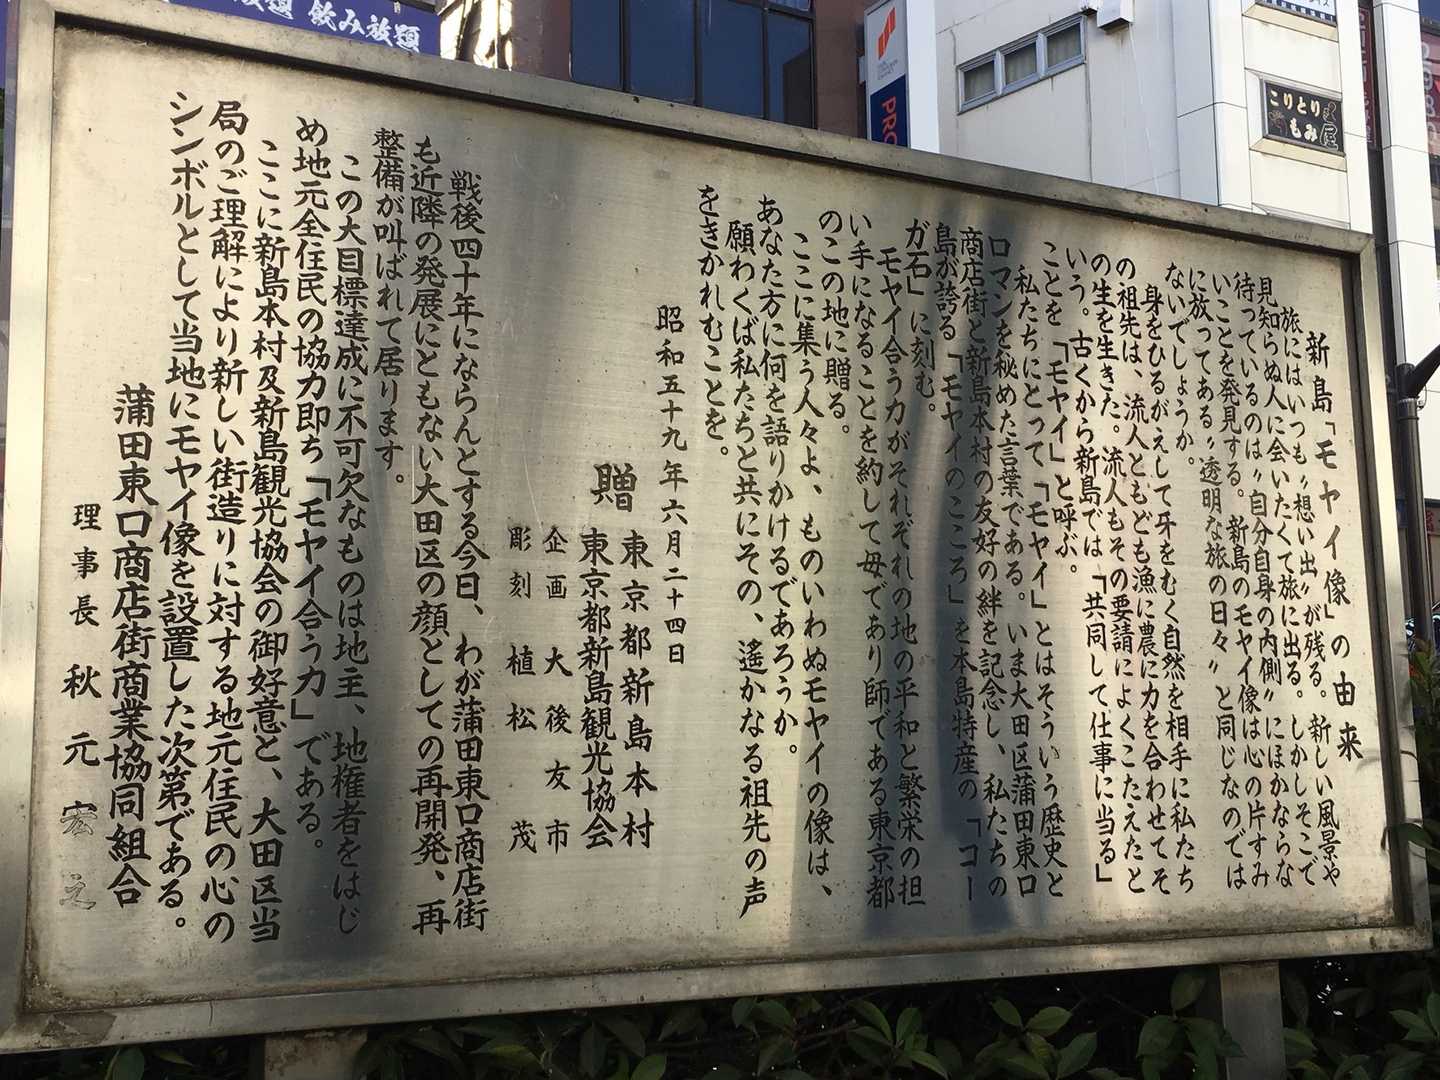 新島「モヤイ像」の由来
旅にはいつも〝想い出〟が残る。新しい風景や
見知らぬ人に会いたくて旅に出る。しかしそこで
待っているのは〝自分自身の内側〟にほかならな
いことを発見する。新島のモヤイ像は心の片すみ
に放ってある〝透明な旅の日々〟と同じなのでは
ないでしょうか。
身をひるがえして牙をむく自然を相手に私たち
の祖先は、流人ともども漁に農に力を合わせてそ
の生を生きた。流人もその要請によくこたえたと
いう。古くから新島では「共同して仕事に当る」
ことを「モヤイ」と呼ぶ。
私たちにとって「モヤイ」とはそういう歴史と
ロマンを秘めた言葉である。いま大田区蒲田東口
商店街と新島本村の友好の絆を記念し、私たちの
島が誇る「モヤイのこころ」を本島特産の「コー
ガ石」に刻む。
モヤイ合う力がそれぞれの地の平和と繁栄の担
い手になることを約して母であり師である東京都
のこの地に贈る。
ここに集う人々よ、ものいわぬモヤイの像は、
あなた方に何を語りかけるであろうか。
願わくば私たちと共にその、遙かなる祖先の声
をきかれむことを。
昭和五十九年六月二十四日
贈 東京都新島本村
東京都新島観光協会
企画 大後友市
彫刻 植松茂
戦後四十年にならんとする今日、わが蒲田東口商店街
も近隣の発展にともない大田区の顔としての再開発、再
整備が叫ばれて居ります。
この大目標達成に不可欠なものは地主、地権者をはじ
め地元全住民の協力即ち「モヤイ合う力」である。
ここに新島本村及新島観光協会の御好意と、大田区当
局のご理解により新しい街造りに対する地元住民の心の
シンボルとして当地にモヤイ像を設置した次第である。
蒲田東口商店街商業協同組合
理事長 秋元宏之
飲み放題
PRO
こりとり
もみ屋